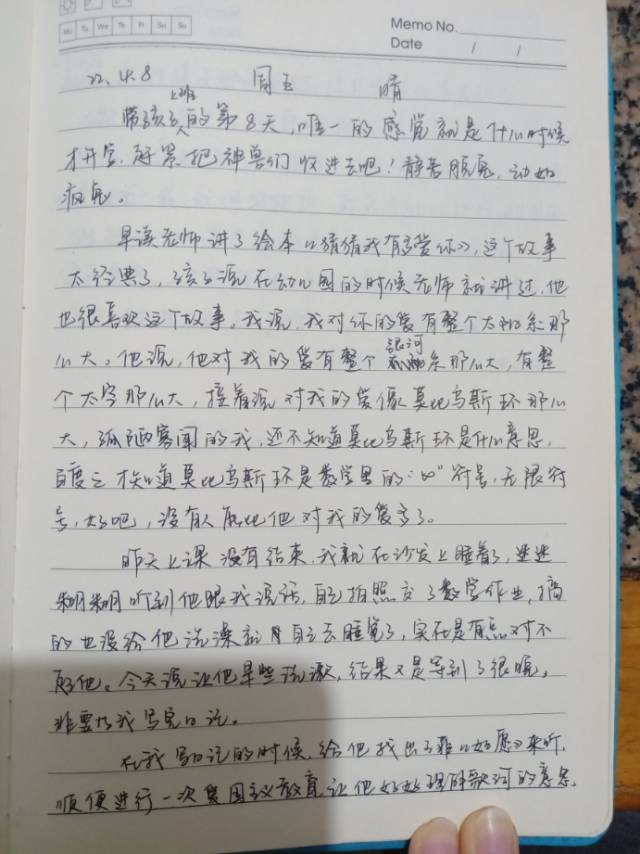 Mo Tu We Th Fr Sa Su
Memo No.
Date / /
22.4.8 周五 晴
上班
带孩子的第8天，唯一的感觉就是什么时候
才开学，赶紧把神兽们收进去吧！静若脱兔，动如
疯兔。
早读老师讲了绘本《猜猜我有多爱你》，这个故事
太经典了，孩子说在幼儿园的时候老师就讲过，他
也很喜欢这个故事。我说，我对你的爱有整个太阳系那
么大，他说，他对我的爱有整个银河系那么大，有整
个太空那么大，接着说对我的爱像莫比乌斯环那么
大，孤陋寡闻的我，还不知道莫比乌斯环是什么意思，
百度之才知道莫比乌斯环是数学里的"∞"符号，无限符
号，好吧，没有人能比他对我的爱多了。
昨天上课没有结束，我就在沙发上睡着了，迷迷
糊糊听到他跟我说话，自己拍照交了数学作业，搞
的也没给他洗澡就自己去睡觉了，实在是有点对不
起他。今天说让他早些洗漱，结果又是等到了很晚，
非要等我写完日记。
在我写日记的时候，给他找出了《如愿》来听，
顺便进行一次爱国主义教育，让他好好理解歌词的意思，